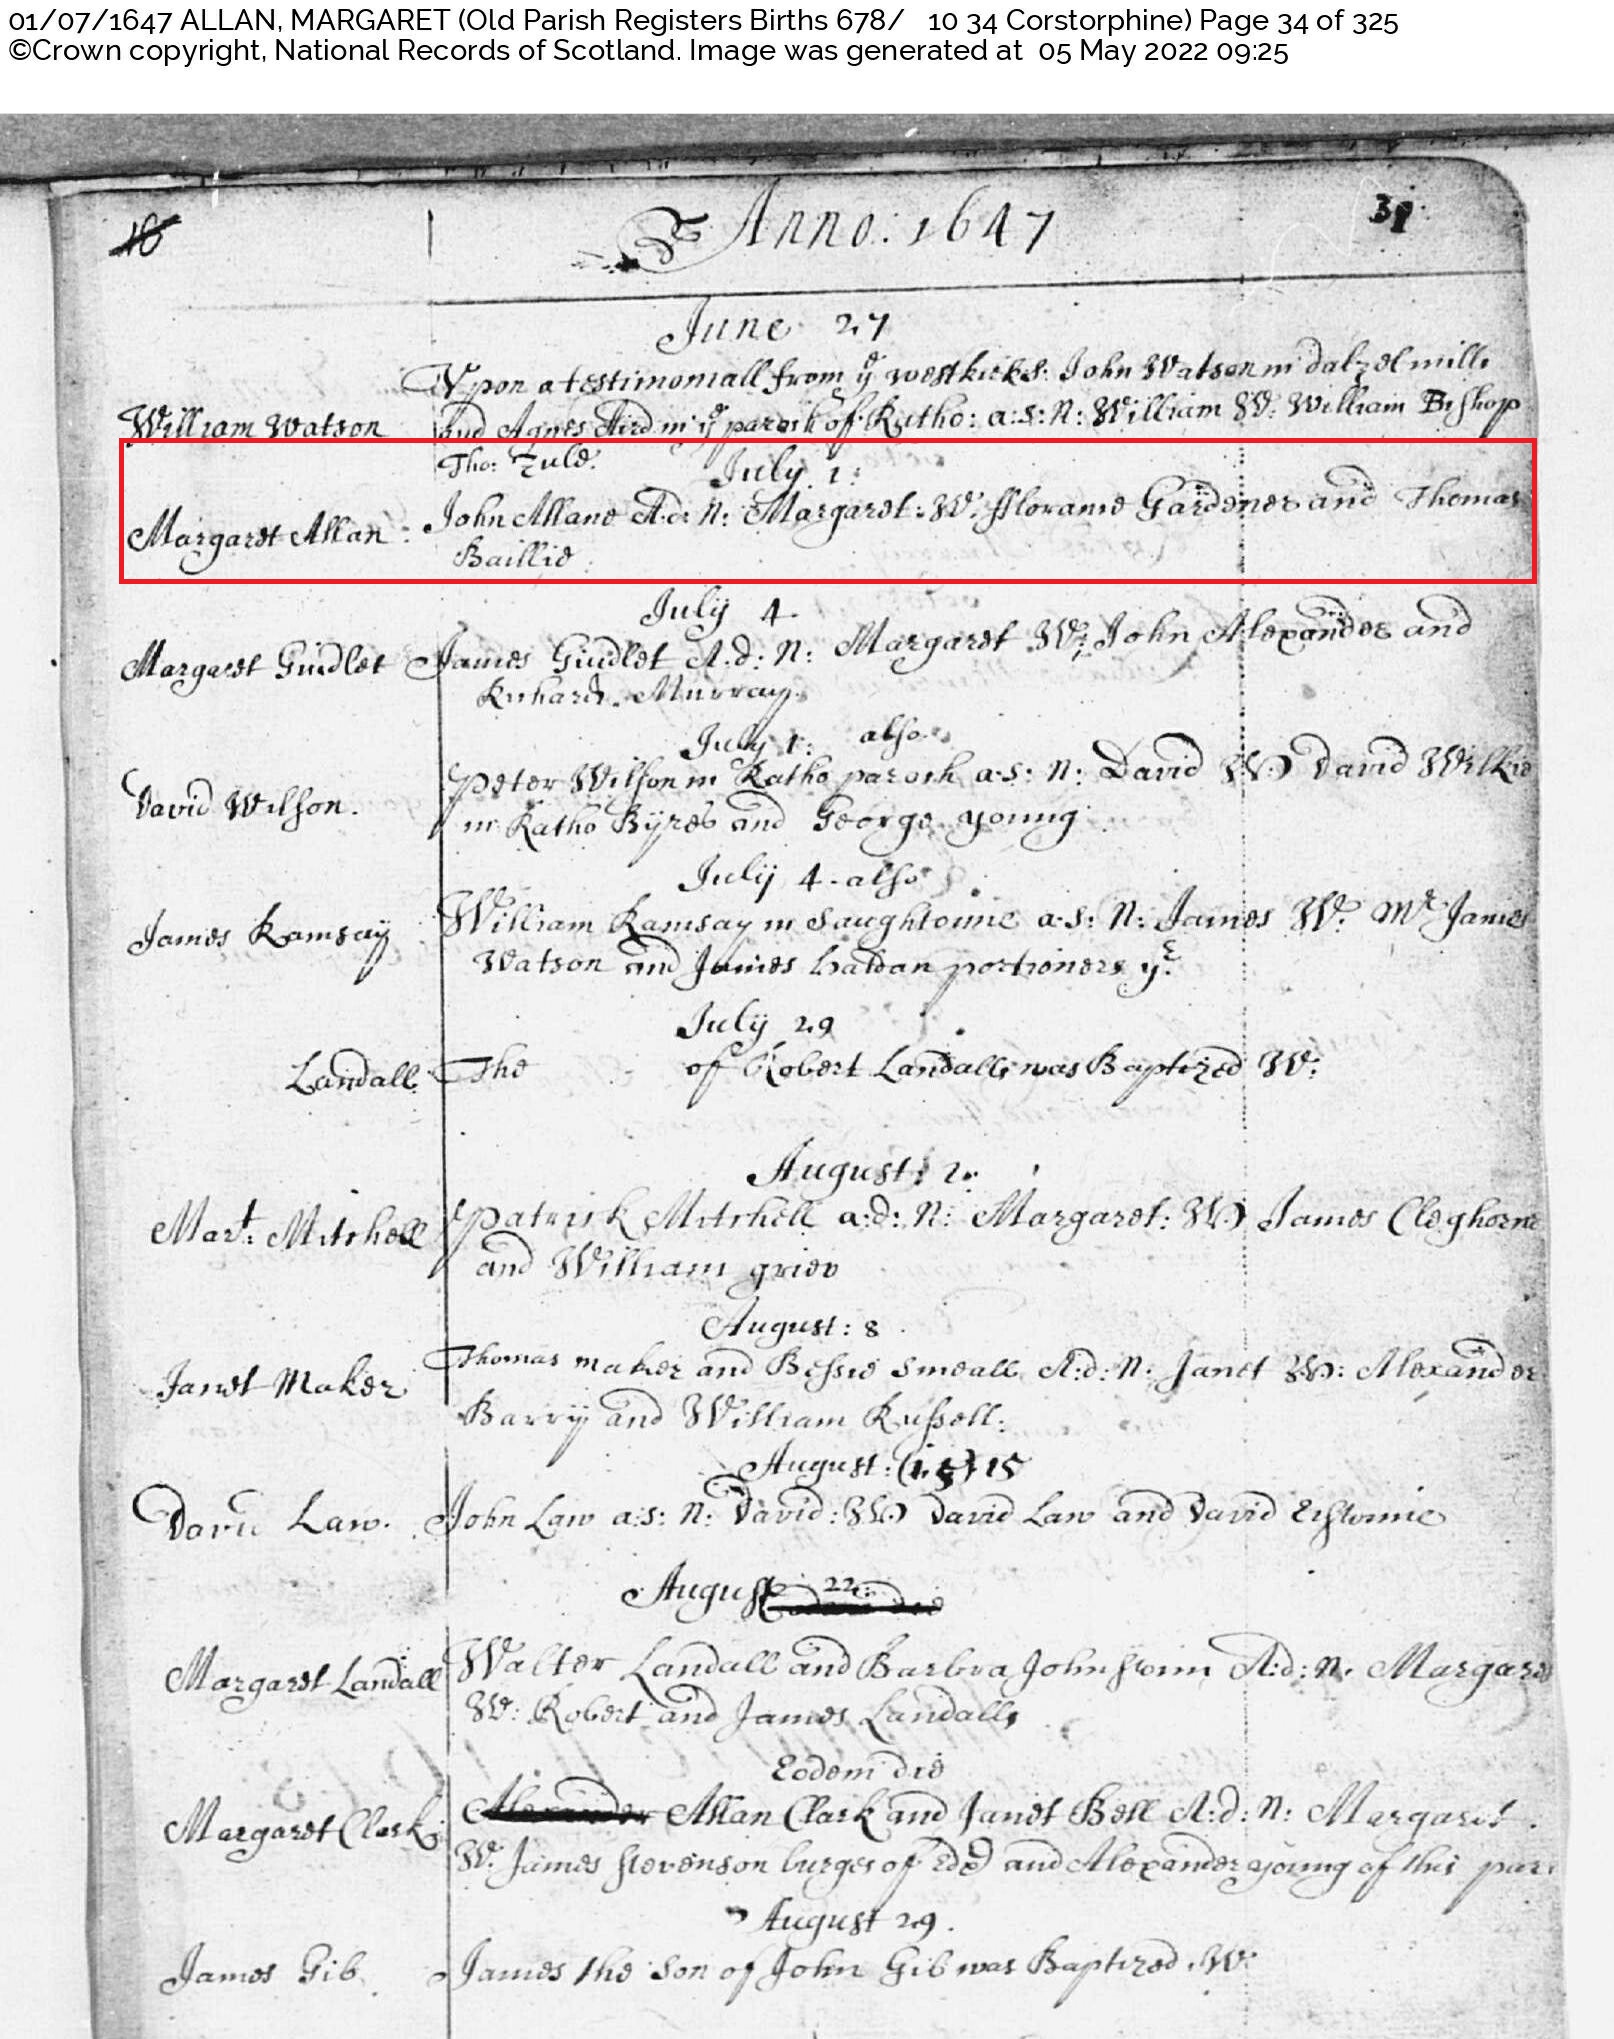 01/07/1647 ALLAN, MARGARET (Old Parish Registers Births 678/ 10 34 Corstorphine) Page 34 of 325
©Crown copyright, National Records of Scotland. Image was generated at 05 May 2022 09:25
16 Anno: 1647
June 27
Vpon a testimoniall from ye westkirks: John Watson in dalzelmills
William Watson and Agnes Aird in ye parosh of Ratho: a:s: N: William W: William Bishop
Tho: Zuls.
July 1:
Margaret Allan: John Allane A:d: N: Margaret: W: fflorams Gardener and Thomas
Baillie
July 4
Margaret Guidlet James Guidlet A:d: N: Margaret W: John Alexander and
Richard Murray.
July 1: also
David Wilson. Peter Wilson in Ratho parosh a:s: N: David W: David Wilkie
in Ratho Byres and George young
July 4 also
James Ramsay William Ramsay in Saughtoune a:s: N: James W: Mr James
Watson and James haldan portioners yr.
July 29
Landall The of Robert Landalls was Baptized W:
August: 2.
Mart: Mitchell Patrick Mitchell a:d: N: Margaret: W: James Cleghorne
and William griev
August: 8
Janet Maker Thomas maker and Bessie Smeall A:d: N: Janet W: Alexander
Barry and William Russell:
August: 15
David Law. John Law a:s: N: David: W: David Law and David
August 22
Margaret Landall Walter Landall and Barbra Johnstoun A:d: N: Margaret
W: Robert and James Landalls
Eodem die
Margaret Clark Alexander Allan Clark and Janet Bell A:d: N: Margaret.
W: James stevenson burges of Edr and Alexander young of this par
August 29.
James Gib James the Son of John Gib was Baptized. W: